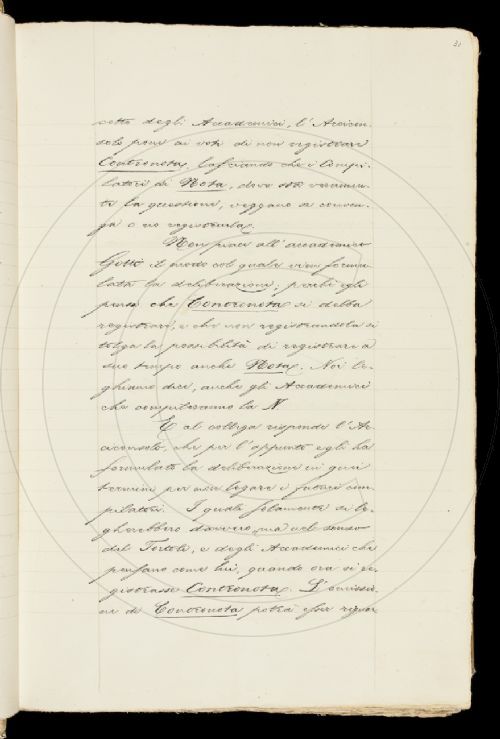 31
cetto degli Accademici, l'Arcicon-
solo pone ai voti di non registrare
Contronota, lasciando che i Compi-
latori di Nota, dove sta veramen-
te la questione, veggano se conven-
ga o no registrarla.
Non piace all'accademico
Gotti il modo col quale vien formu-
lata la deliberazione; perchè egli
pensa che Contronota si debba
registrare, e che non registrandola si
tolga la possibilità di registrare a
suo tempo anche Nota. Noi le-
ghiamo dice, anche gli Accademici
che compileranno la N.
E al collega risponde l'Ar-
ciconsolo, che per l'appunto egli ha
formulato la deliberazione in quei
termini per non legare i futuri com-
pilatori. I quali solamente si le-
gherebbero davvero, ma nel senso
del Tortoli, e degli Accademici che
pensano come lui, quando ora si re-
gistrasse Contronota. L'omissio-
ne di Contronota potrà esser ripar